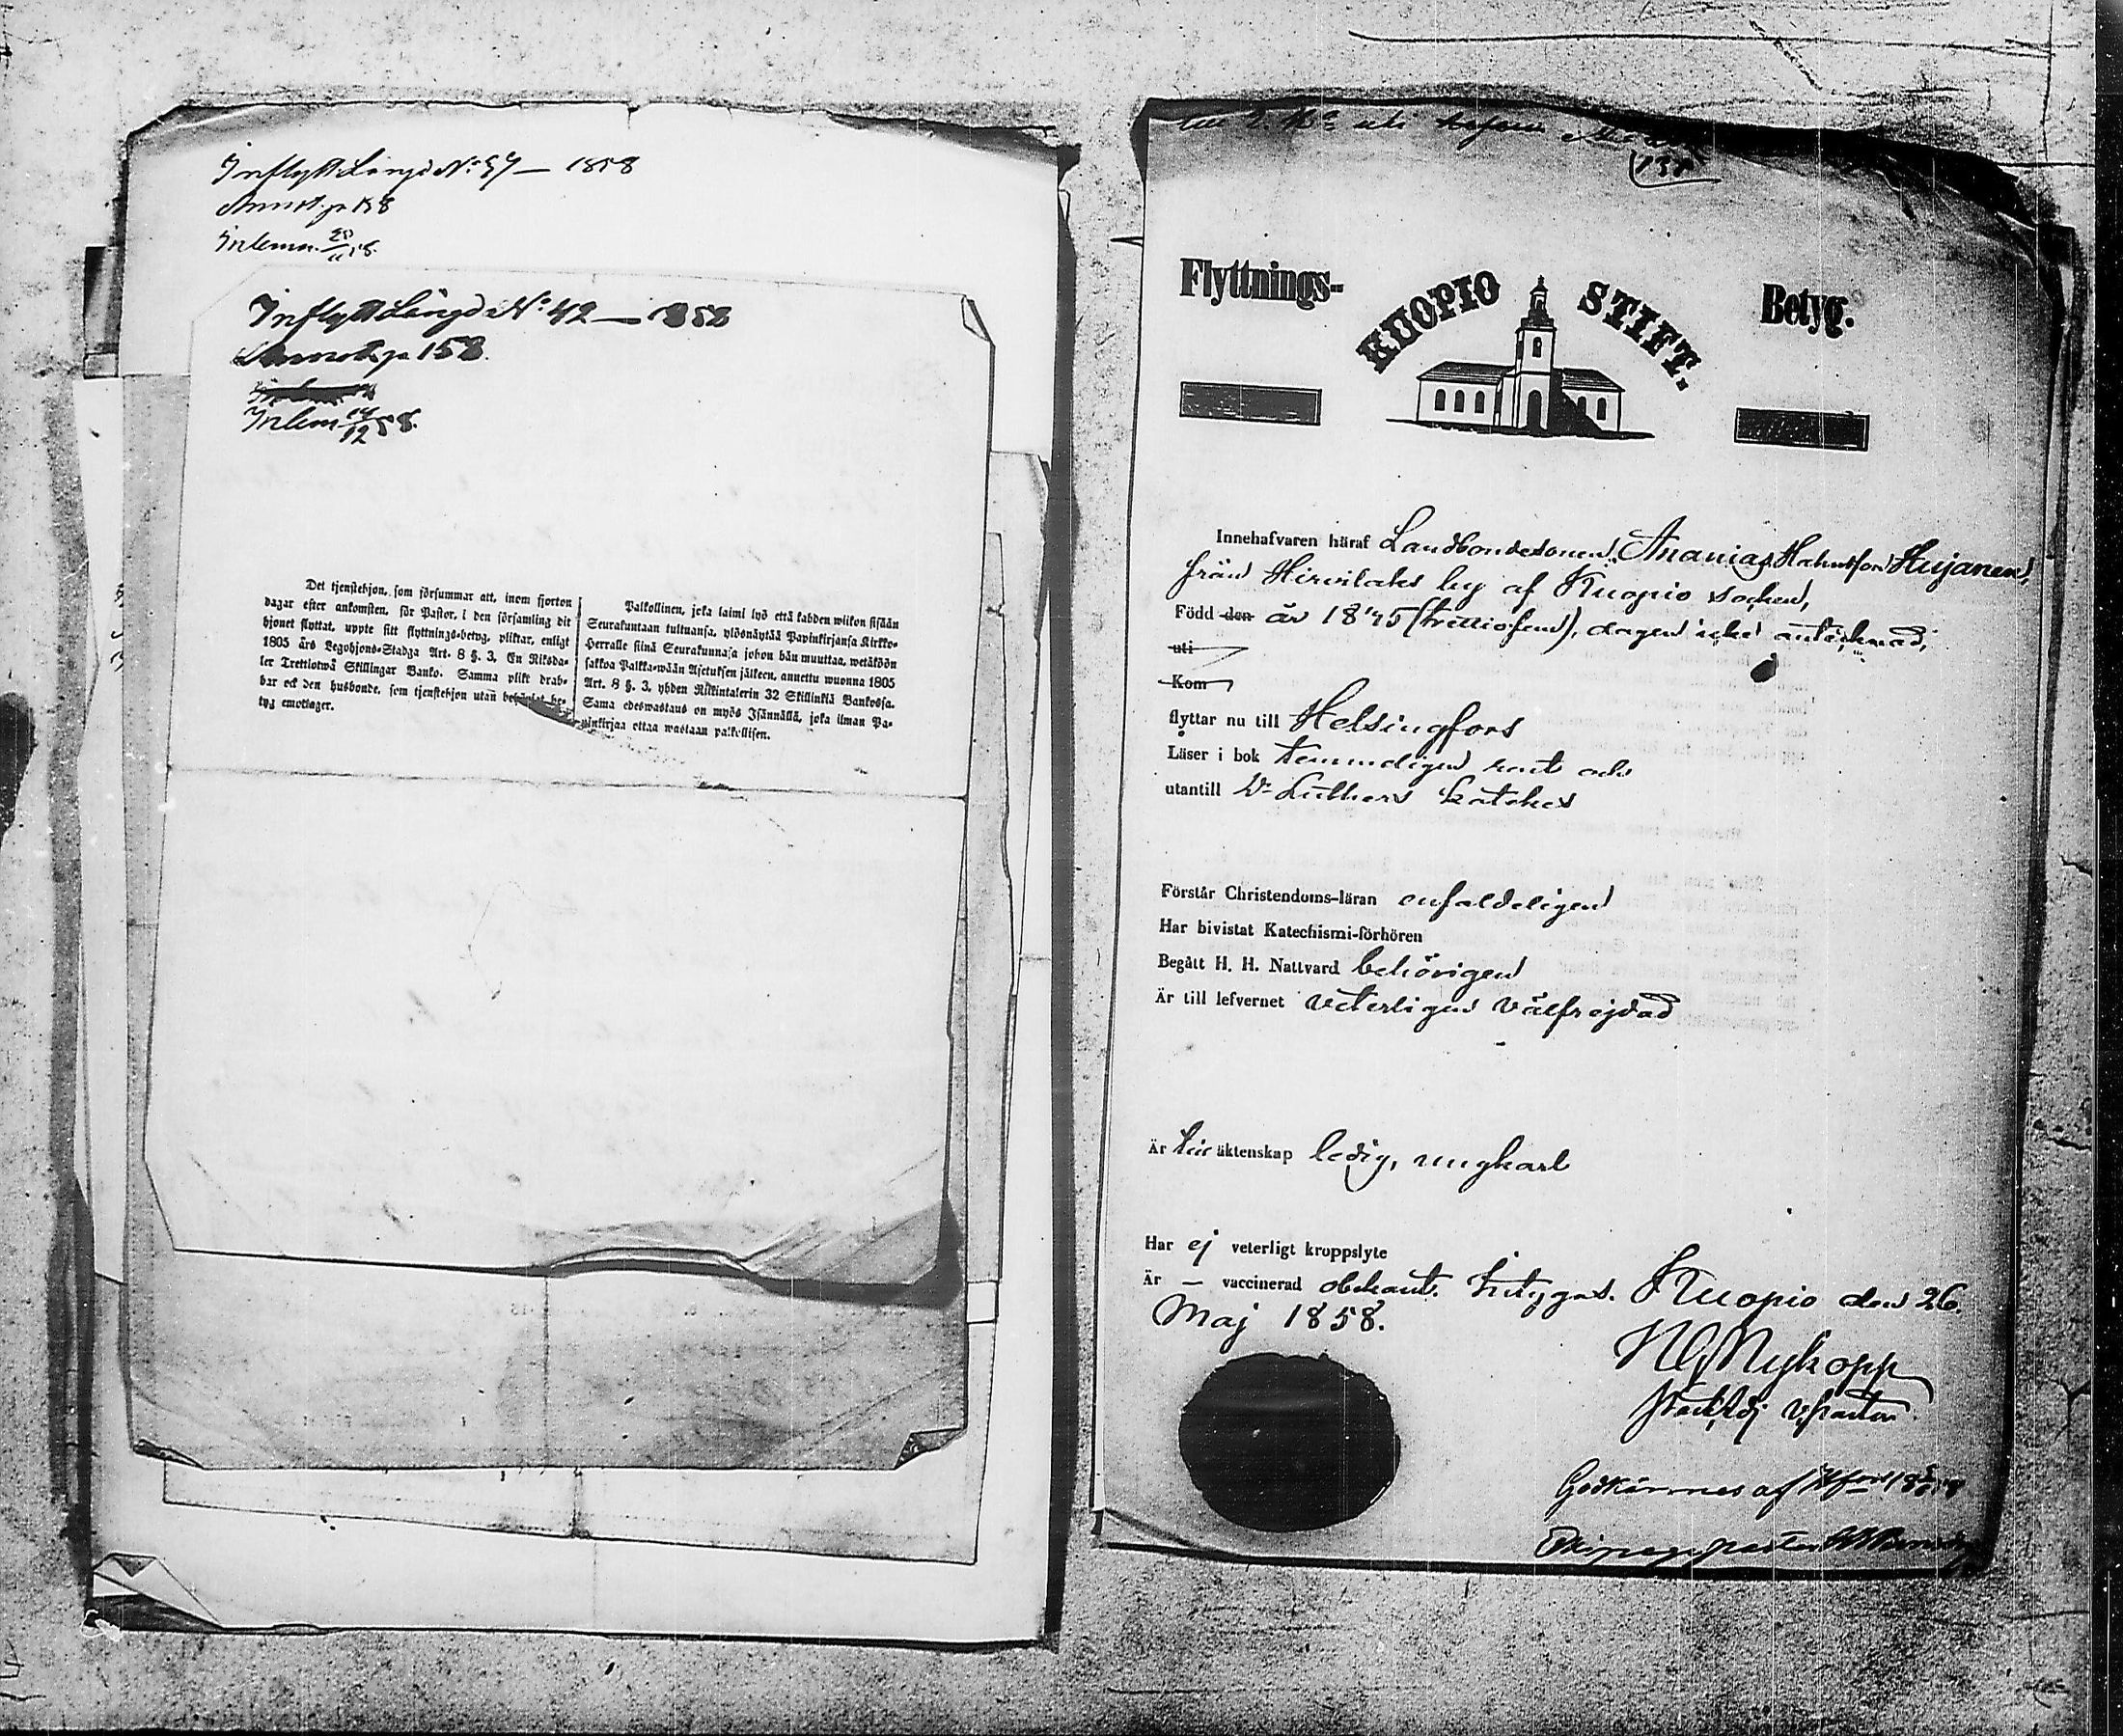 InflyttLängd N:o 57 — 1858
Annot. pa 158
Inlemn. 
InflyttLängd N:o 42 — 1858
Annot. pa 158.
Inlem 14/12 58.
Det tjenstehjon, som försummar att, inom fjorton
dagar efter ankomsten, för Pastor, i den församling dit
hjonet flyttat, uppte sitt flyttnings-betyg, pliktar, enligt
1805 års Legohjons-Stadga Art. 8 §. 3, En Riksda-
ler Trettiotwå Skillingar Banko. Samma plikt drab-
bar ock den husbonde, som tjenstehjon utan behörigt be-
tyg emottager.
Palkollinen, joka laimi lyö että kahden wiikon sisään
Seurakuntaan tultuansa, ylösnäytää Papinkirjansa Kirkko-
Herralle siinä Seurakunnasa johon hän muuttaa, wetäköön
sakkoa Palkka-wään Asetuksen jälkeen, annettu wuonna 1805
Art. 8 §. 3, yhden Riikintalerin 32 Skillinkiä Bankossa.
Sama edeswastaus on myös Isännällä, joka ilman Pa-
pinkirjaa ottaa wastaan palkollisen.
Flyttnings- KUOPIO STIFT. Betyg.
Innehafvaren häraf Landbondesonen, Ananias Hujanen,
från Hirvilaks by af Kuopio socken,
Född den år 1835 (trettiofem), dagen icke antecknad,
uti
Kom
flyttar nu till Helsingfors
Läser i bok temmeligen rent och
utantill Dr Luthers katekes
Förstår Christendoms-läran enfaldeligen
Har bivistat Katechismi-förhören
Begått H. H. Nattvard behörigen
Är till lefvernet veterligen välfrejdad
Är till äktenskap ledig, ungkarl
Har ej veterligt kroppslyte
Är — vaccinerad obekant. Intygas. Kuopio den 26.
Maj 1858.
Nykopp
v. Pastor.
Godkännes af
Ekipagepastor